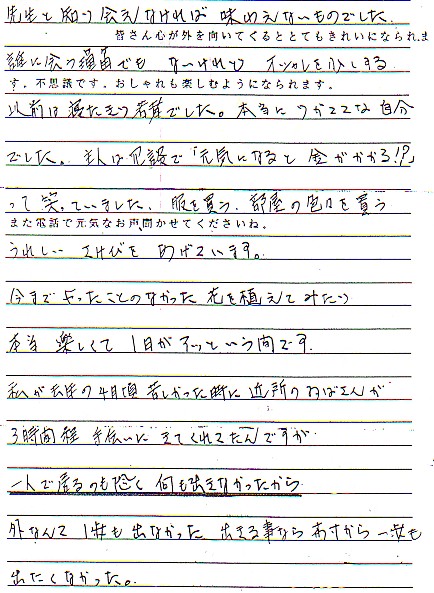 先生と知り会えなければ 味わえないものでした。
皆さん心が外を向いてくるととてもきれいになられま
誰に会う 訳でも ないけれど オシャレを少しする
す。不思議です。おしゃれも楽しむようになられます。
以前は寝たきり若年でした。本当に ワガママな 自分
でした。主人は冗談で「元気になると 金がかかる!?」
って 笑っていました。服を買う、部屋の 色々を 買う
また電話で元気なお声聞かせてくださいね。
うれしい さけびを あげています。
今まで やったことのなかった 花を植えてみたり
本当 楽しくて 1日が アッという間です。
私が 去年の 4月頃 苦しかった時に 近所の おばさんが
3時間程 手伝いに きてくれてたんですが
一人で居るのも恐く 何も出きなかったから
外なんて 1歩も 出なかった 出きる事なら 一歩も
出たくなかった。